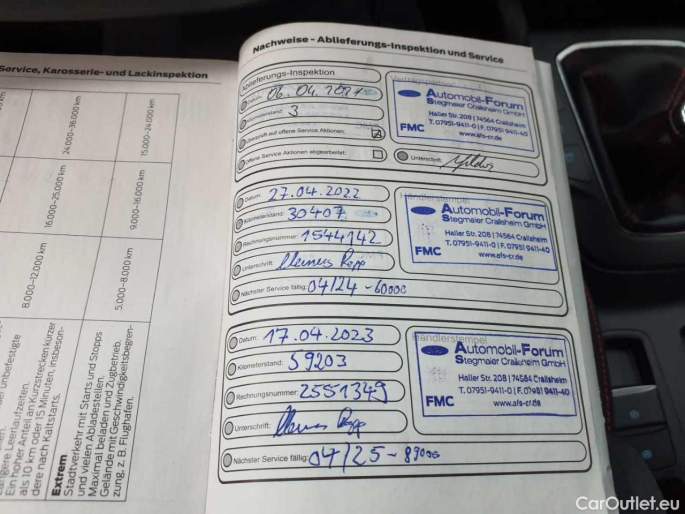 Service, Karosserie- und Lackinspektion
24.000–36.000 km
15.000–24.000 km
16.000–25.000 km
9.000–16.000 km
8.000–12.000 km
5.000–8.000 km
unbefestigte
Ein hoher Anteil an Kurzstrecken kürzer
als 10 km oder 15 Minuten, insbeson-
dere nach Kaltstarts.
Extrem
Stadtverkehr mit Starts und Stopps
und vielen Abladestellen.
Maximal beladen und Zugbetrieb.
Gelände mit Geschwindigkeitsbegren-
zung, z. B. Flughäfen.
Nachweise - Ablieferungs-Inspektion und Service
Ablieferungs-Inspektion
Datum: 06.04.2021
3
auf offene Service Aktionen:
Offene Service Aktionen abgearbeitet:
Unterschrift:
Automobil-Forum
Stegmaier Crailsheim GmbH
Haller Str. 208 | 74564 Crailsheim
T. 07951-9411-0 | F. 07951 9411-40
FMC
www.afs-cr.de
Datum: 27.04.2022
Kilometerstand: 30407
Rechnungsnummer: 1544142
Unterschrift:
Nächster Service fällig: 04/24 - 60000
Händlerstempel
Automobil-Forum
Stegmaier Crailsheim GmbH
Haller Str. 208 | 74564 Crailsheim
T. 07951-9411-0 | F. 07951 9411-40
FMC
www.afs-cr.de
Datum: 17.04.2023
Kilometerstand: 59203
Rechnungsnummer: 2551349
Unterschrift:
Nächster Service fällig: 04/25 - 89000
Händlerstempel
Automobil-Forum
Stegmaier Crailsheim GmbH
Haller Str. 208 | 74564 Crailsheim
T. 07951-9411-0 | F. 07951 9411-40
FMC
www.afs-cr.de
CarOutlet.eu